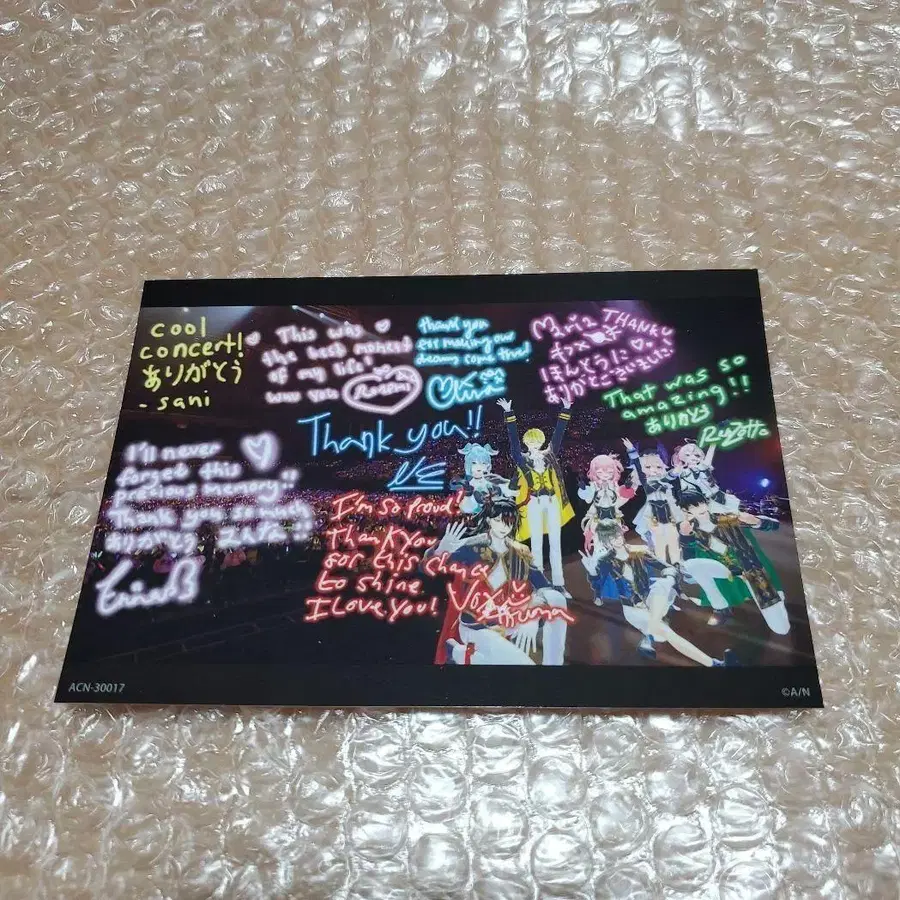 cool
concert!
ありがとう
- sani
This was
the best moment
of my life!
Rosemi
Thank you
for making our
dreams come true!
Maria THANKU
ほんとうに
ありがとうございました!
That was so
amazing!!
ありがとう
Ryzotto
Thank you!!
I'll never
forget this
precious memory!!
Thank you so much
ありがとう
I'm so proud!
Thank you
for this chance
to shine
I love you! Vox
Akuma
ACN-30017
©A/N